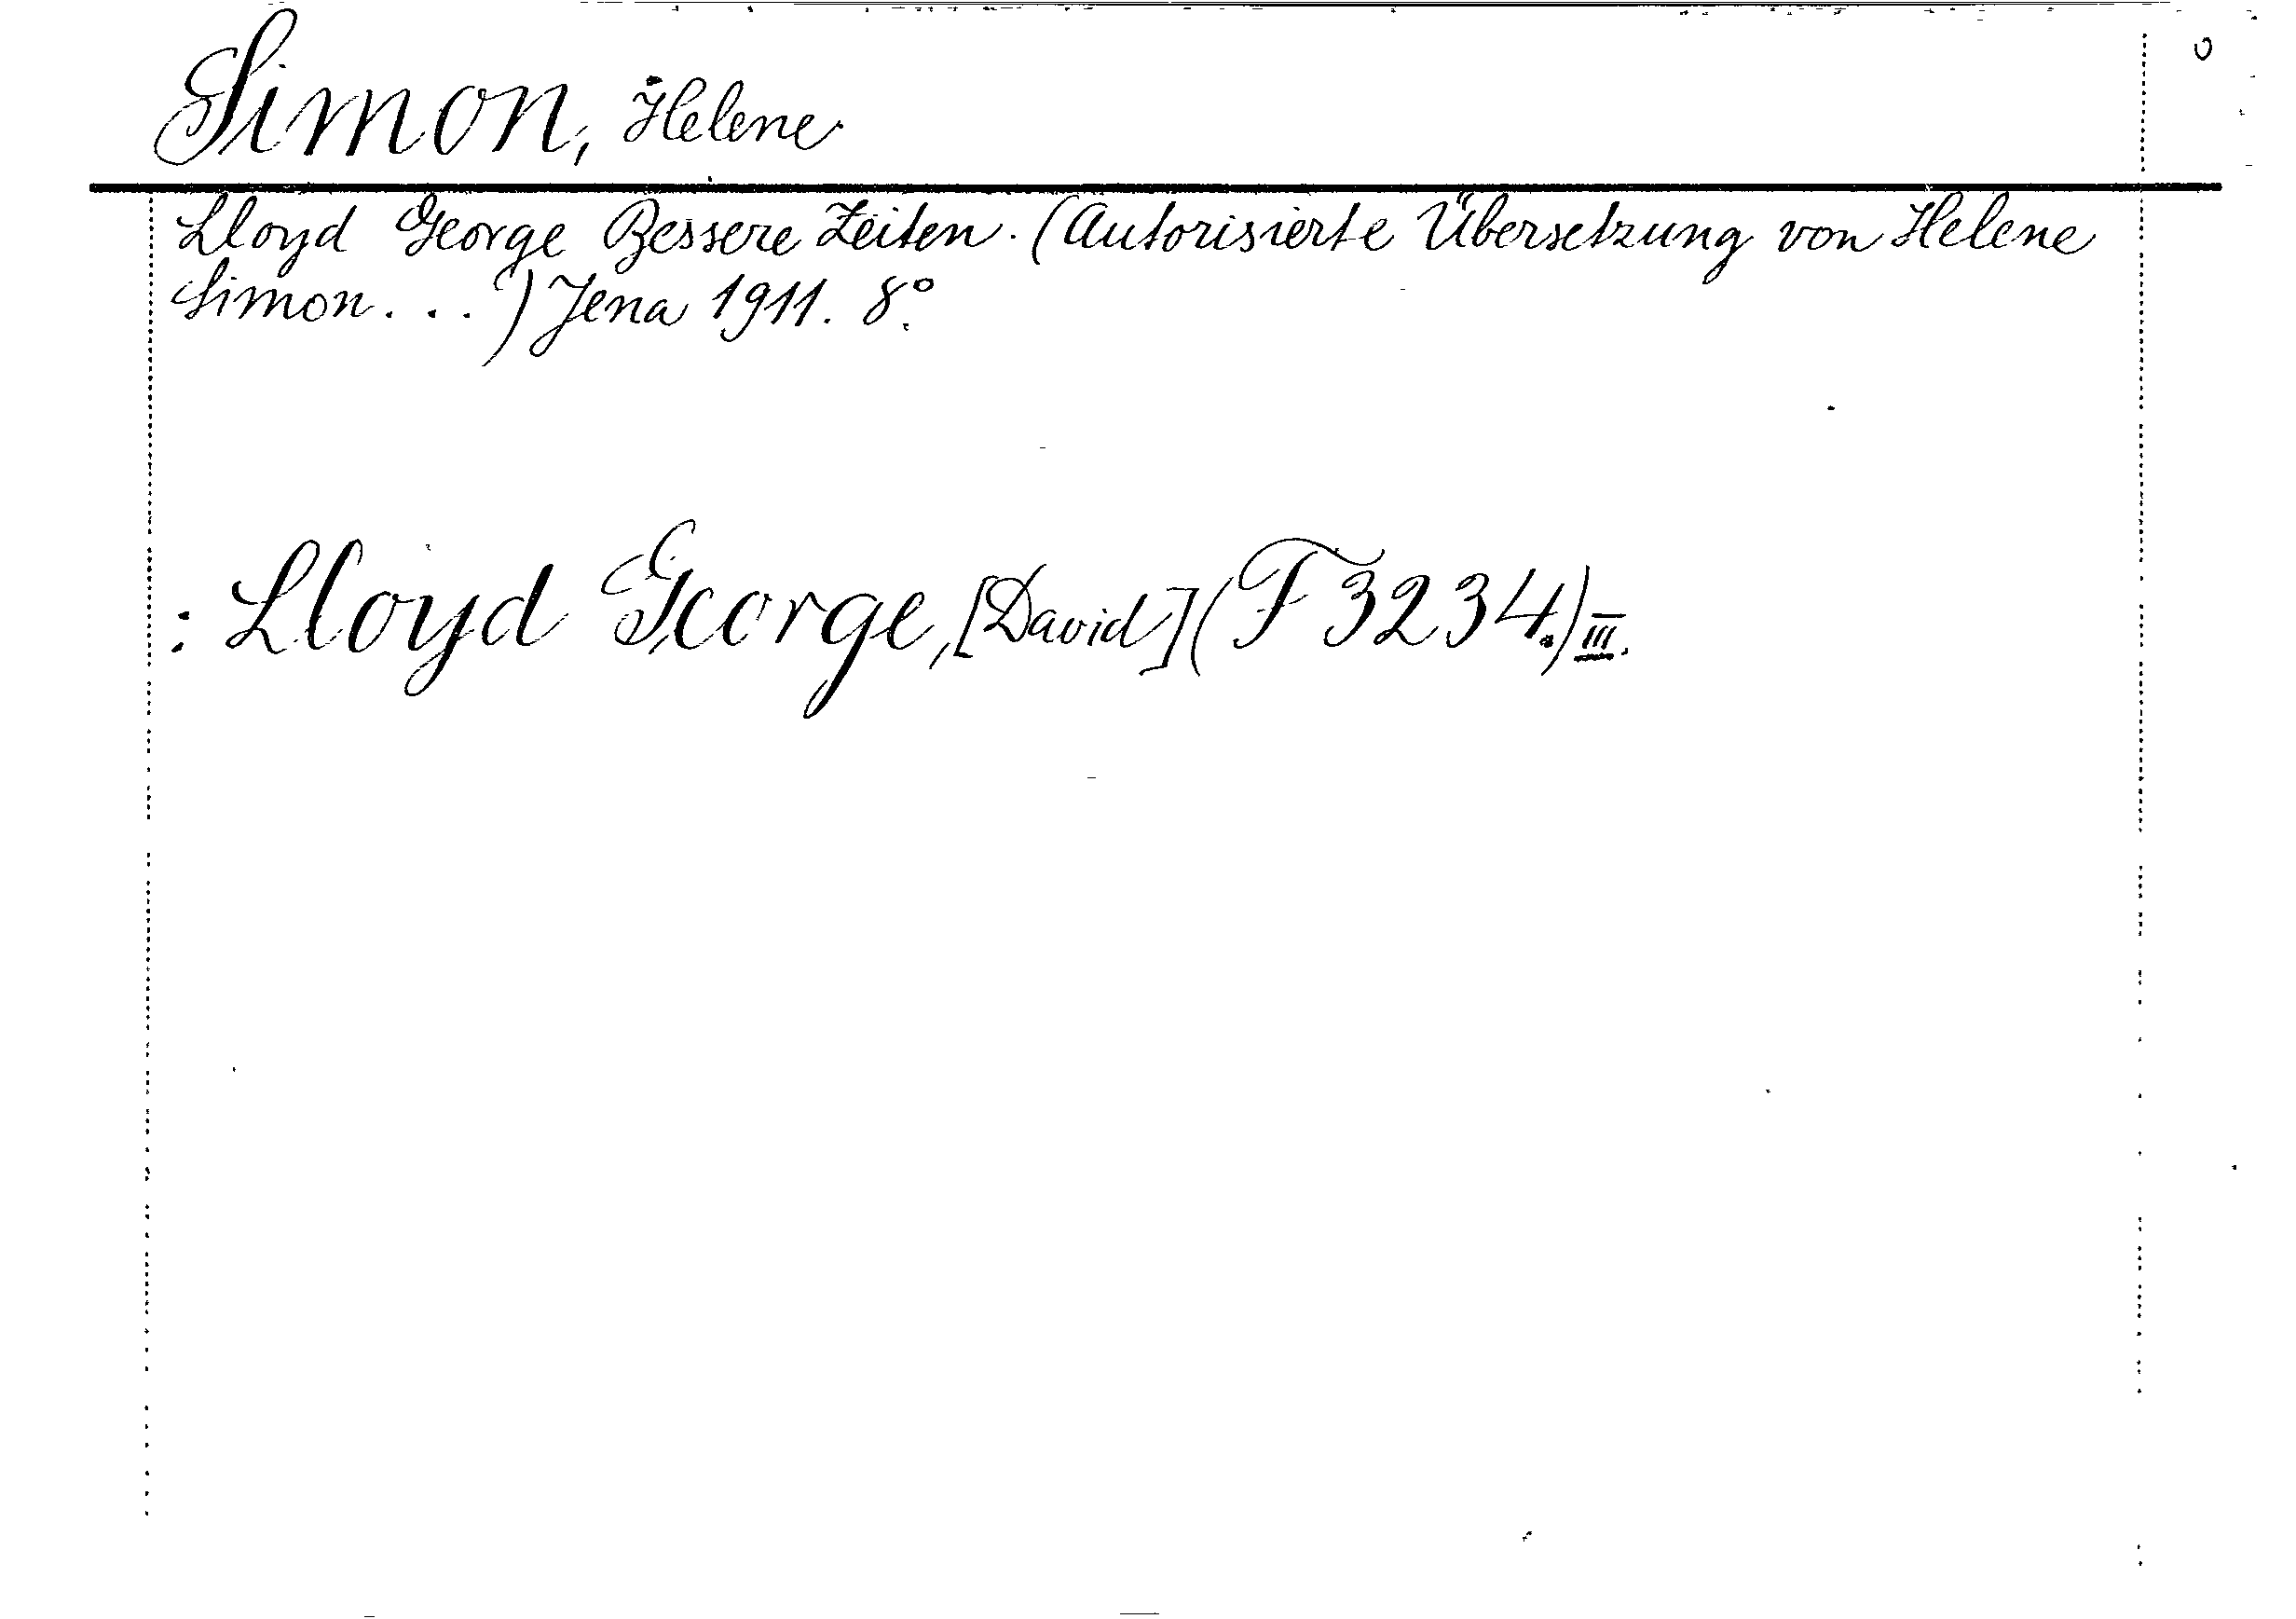 Simon, Helene
Lloyd George Bessere Zeiten. (Autorisierte Übersetzung von Helene
Simon...) Jena 1911. 8°.
: Lloyd George, [David] (F 3234.) III.